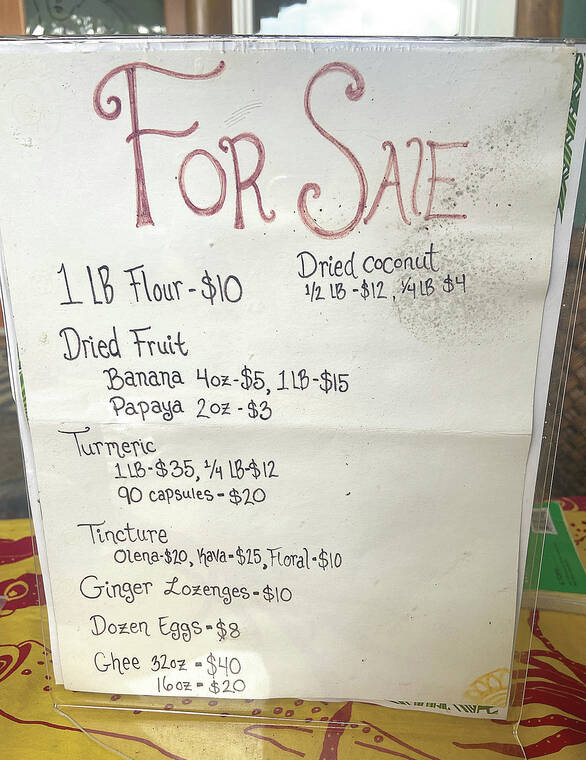 FOR SALE
1 LB Flour - $10
Dried coconut
1/2 LB - $12, 1/4 LB $4
Dried Fruit
Banana 4oz - $5, 1 LB - $15
Papaya 2oz - $3
Turmeric
1 LB - $35, 1/4 LB - $12
90 capsules - $20
Tincture
Olena - $20, Kava - $25, Floral - $10
Ginger Lozenges - $10
Dozen Eggs - $8
Ghee 32oz - $40
16oz - $20